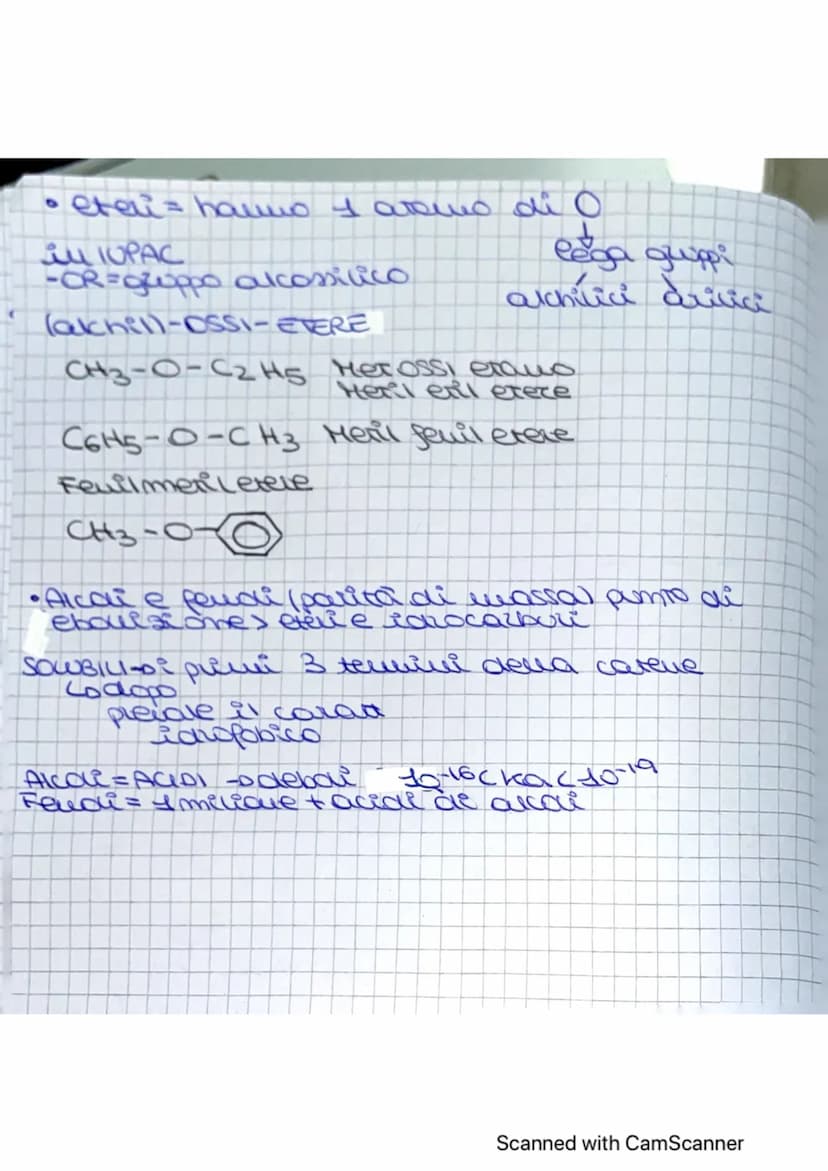 • eteri = hanno 1 atomo di O
↓
in IUPAC
lega gruppi
-OR = gruppo alcossilico
alchilici arilici
(alchil)-OSSI-ETERE
CH3-O-C2H5 Metossi etano
Metil etil etere
C6H5-O-CH3 Metil fenil etere
Fenilmetiletere
CH3-O-
• Alcoli e fenoli (parità di massa) punto di
ebollizione > eteri e idrocarburi
SOLUBILI → i primi 3 termini della catene
↳ dopo
prevale il caratt
idrofobico
Alcoli = ACIDI → deboli 10-16 < Ka < 10-19
Fenoli = 1 milione + acidi di alcoli
Scanned with CamScanner